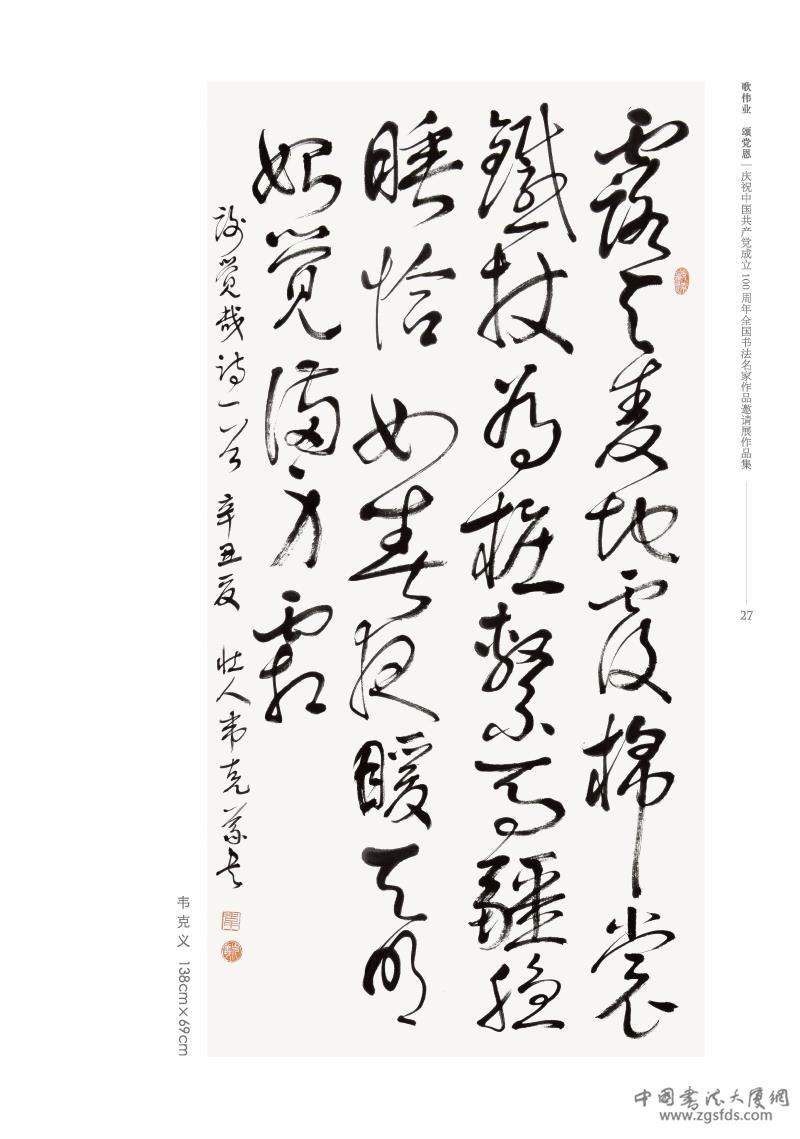 歌伟业 颂党恩 | 庆祝中国共产党成立100周年全国书法名家作品邀请展作品集
27
露天麦地覆棉裳
鐵杖为桩繫马韁穩
睡恰如春夜暖天明
始觉满身霜
謝觉哉诗一首 辛丑夏 壮人韦克义书
韦克义 138cm×69cm
中国书法大厦網
www.zgsfds.com